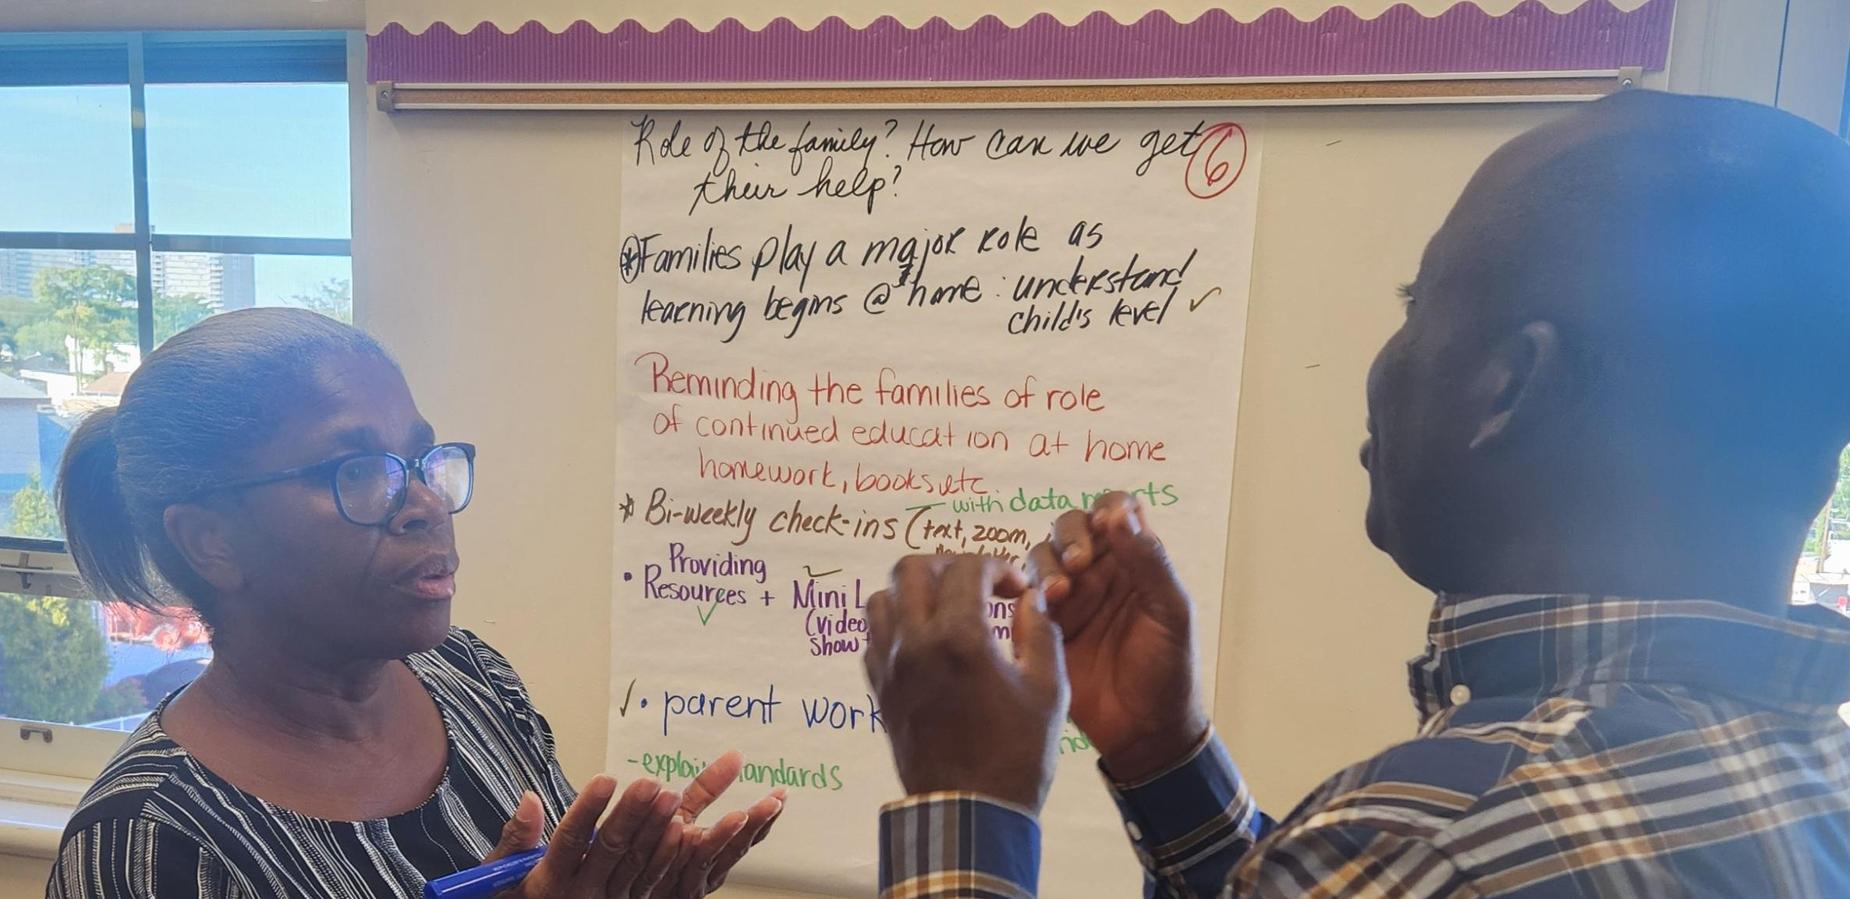 Role of the family? How can we get 6
their help?
* Families play a major role as
learning begins @ home : understand
child's level ✓
Reminding the families of role
of continued education at home
homework, books, etc.
* Bi-weekly check-ins (text, zoom,
– with data
• Providing
Resources + Mini
(video
show
✓ • parent work
- explain standards